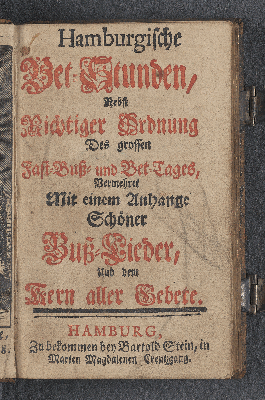 Hamburgische
Bet-Stunden,
Nebst
Richtiger Ordnung
Des grossen
Fast-Buß- und Bet-Tages,
Vermehret
Mit einem Anhange
Schöner
Buß-Lieder,
Und dem
Kern aller Gebete.
HAMBURG,
Zu bekommen bey Bartold Stein, in
Marien Magdalenen Creutzgang.